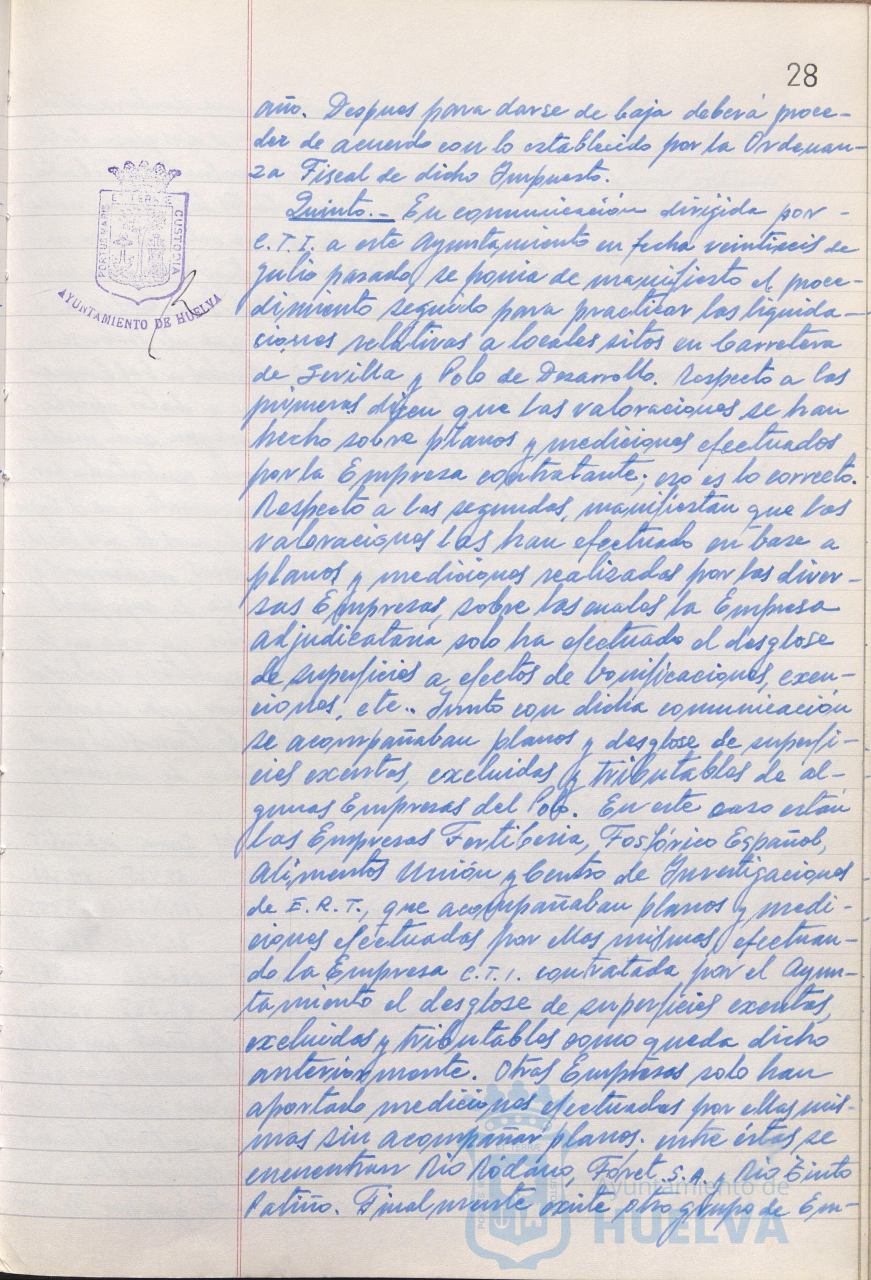 28
año. Despues para darse de baja deberá proce-
der de acuerdo con lo establecido por la Ordenan-
za Fiscal de dicho Impuesto.
Quinto.- En comunicación dirigida por -
C.T.I. a este Ayuntamiento en fecha veintiseis de
julio pasado, se ponia de manifiesto el proce-
dimiento seguido para practicar las liquida-
ciones relativas a locales sitos en Carretera
de Sevilla y Polo de Desarrollo. Respecto a los
primeros dicen que las valoraciones se han
hecho sobre planos y mediciones efectuados
por la Empresa contratante; eso es lo correcto.
Respecto a los segundos, manifiestan que las
valoraciones las han efectuado en base a
planos y mediciones realizados por las diver-
sas Empresas, sobre las cuales la Empresa
adjudicataria solo ha efectuado el desglose
de superficies a efectos de bonificaciones, exen-
ciones, etc.. Junto con dicha comunicación
se acompañaban planos y desglose de superfi-
cies exentas, excluidas y tributables de al-
gunas Empresas del Polo. En este caso están
las Empresas Fertiberia, Fosfórico Español,
Alimentos Unión y Centro de Investigaciones
de E.R.T., que acompañaban planos y medi-
ciones efectuadas por ellas mismas, efectuan-
do la Empresa C.T.I. contratada por el Ayun-
tamiento el desglose de superficies exentas,
excluidas y tributables como queda dicho
anteriormente. Otras Empresas solo han
aportado mediciones efectuadas por ellas mis-
mas sin acompañar planos. entre éstas se
encuentran Rio Ródano, Foret S.A. y Rio Tinto
Patiño. Finalmente existe otro grupo de Em-
PORTUS MARIS ET TERRE CUSTODIA
AYUNTAMIENTO DE HUELVA
Ayuntamiento de
HUELVA